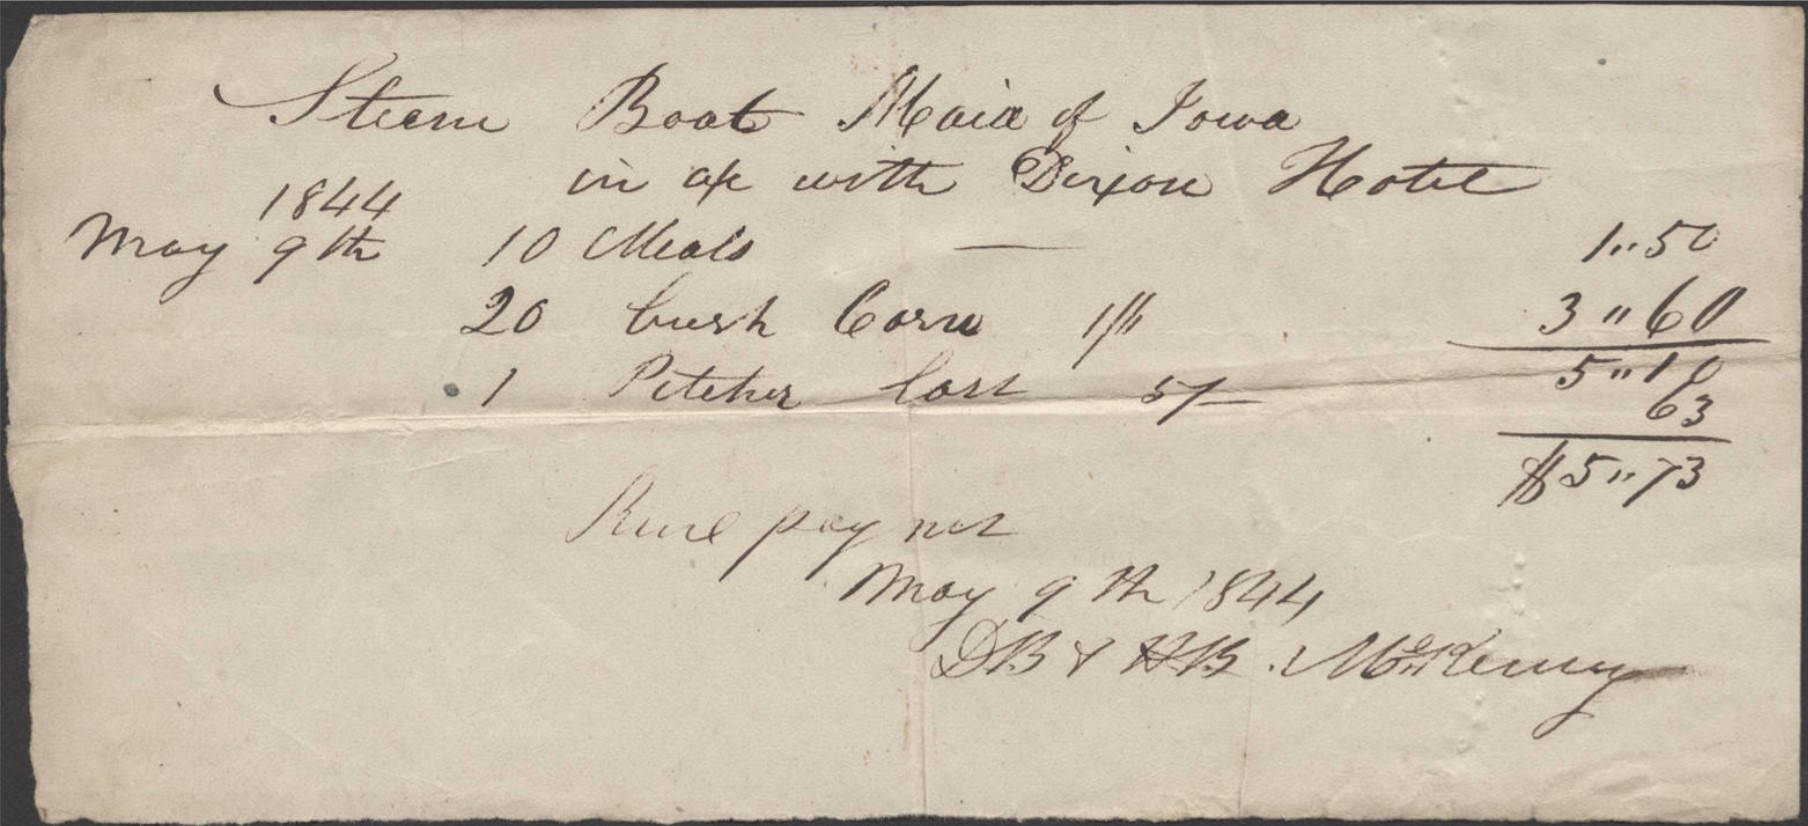 Steem Boat Maid of Iowa
in a/c with Dixon Hotel
1844
May 9th 10 Meals — 1"50
20 bush Corn 3"60
5"10
1 Pitcher lost 5/— 63
$5"73
Recd pay not
May 9th 1844
DB & HB McKenny